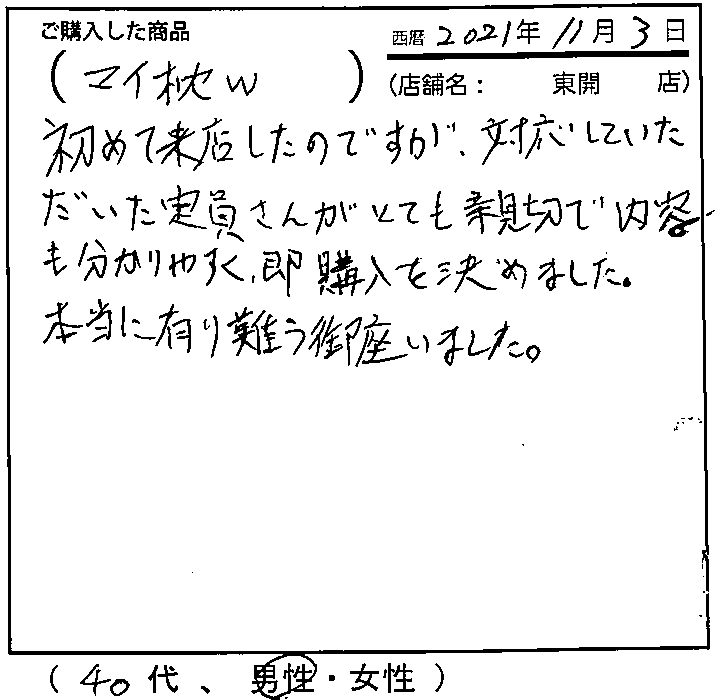 ご購入した商品
西暦 2021年 11月 3日
(マイ枕W)
(店舗名： 東開 店)
初めて来店したのですが、対応していた
だいた定員さんがとても親切で内容
も分かりやすく、即購入を決めました。
本当に有り難う御座いました。
(40代、男性・女性)